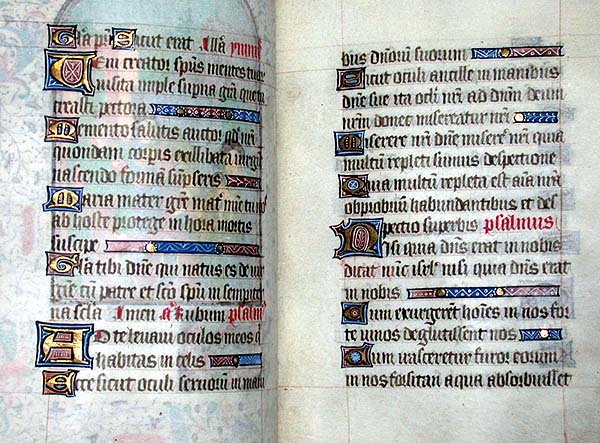 Gl'a pr'i Sicut erat Alla ymnus
Veni creator sp'us mentes tuor'
visita imple sup'na gr'a que tu
creasti pectora
Memento salutis auctor q'd n'ri
quondam corp'is ex illibata virgi'e
nascendo formam su'pseris
Maria mater gr'e mat' m'ie tu nos
ab hoste protege in hora mortis
suscipe
Gl'a tibi d'ne qui natus es de vir
gi'e cu' patre et sc'o sp'u in sempit'
na sc'la Amen a' Rubum psalm'
Ad te levavi oculos meos q'
habitas in celis
Ecce sicut oculi servorum in manu
bus d'norum suorum
Sicut oculi ancille in manibus
d'ne sue ita oc'li n'ri ad d'num deum
n'rm donec misereatur n'ri
Miserere n'ri d'ne misere' n'ri quia
multum repleti sumus despectione
Quia multum repleta est a'ia n'ra
obprobrium habundantibus et des
pectio superbis psalmus
Nisi quia d'ns erat in nobis
dicat nunc isr'l nisi quia d'ns erat
in nobis
Cum exurgere't ho'ies in nos for
te vivos deglutissent nos
Cum irasceretur furor eorum
in nos forsitan aqua absorbuisset